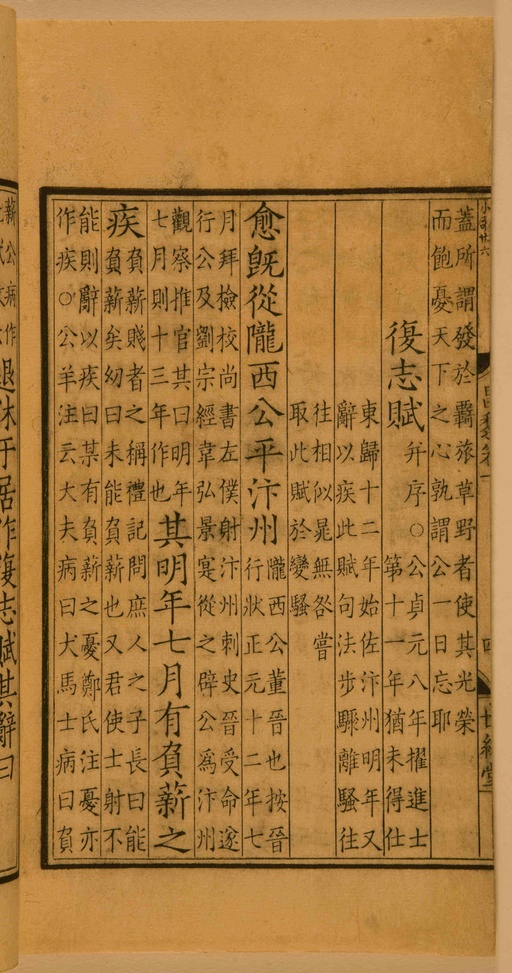 昌黎卷一
四
世綵堂
蓋所謂發於羈旅草野者使其光榮
而飽憂天下之心孰謂公一日忘耶
復志賦
并序○公貞元八年擢進士
第十一年猶未得仕
東歸十二年始佐汴州明年又
辭以疾此賦句法步驟離騷往
往相似晁無咎嘗
取此賦於變騷
愈旣從隴西公平汴州
隴西公董晉也按晉
行狀正元十二年七
月拜檢校尚書左僕射汴州刺史晉受命遂
行公及劉宗經韋弘景寔從之辟公爲汴州
觀察推官其曰明年
七月則十三年作也
其明年七月有負薪之
疾
負薪賤者之稱禮記問庶人之子長曰能
負薪矣幼曰未能負薪也又君使士射不
能則辭以疾曰某有負薪之憂鄭氏注憂亦
作疾○公羊注云大夫病曰犬馬士病曰負
薪公病作
退休于居作復志賦其辭曰